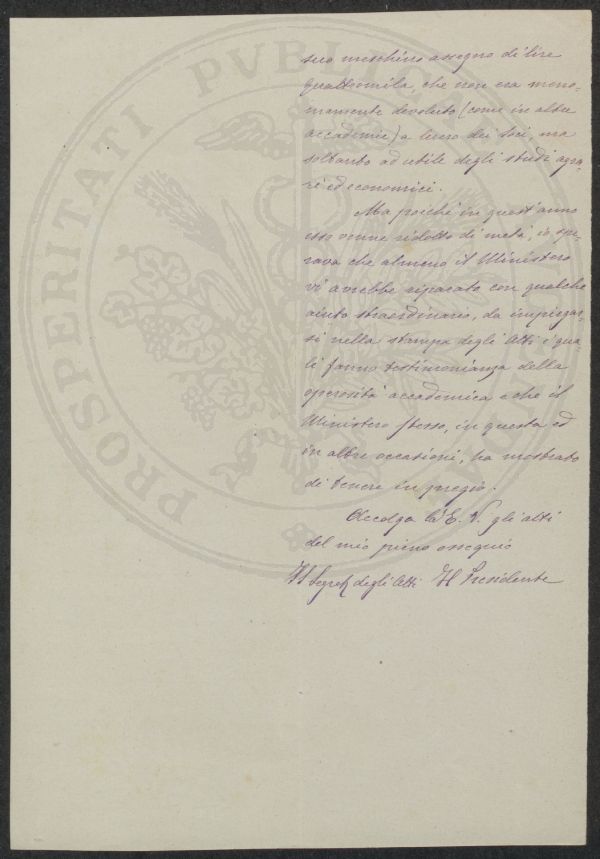 suo meschino assegno di lire
quattromila, che non era meno-
mamente devoluto (come in altre
accademie) a lucro dei soci, ma
soltanto ad utile degli studi agra-
ri ed economici.
Ma poichè in quest'anno
esso venne ridotto di metà, io spe-
rava che almeno il Ministero
vi avrebbe riparato con qualche
aiuto straordinario, da impiegar-
si nella stampa degli Atti i qua-
li fanno testimonianza della
operosità accademica e che il
Ministero stesso, in questa ed
in altre occasioni, ha mostrato
di tenere in pregio.
Accolga la E. V. gli atti
del mio pieno ossequio
Il Segret degli Atti Il Presidente
PROSPERITATI PVBLICAE